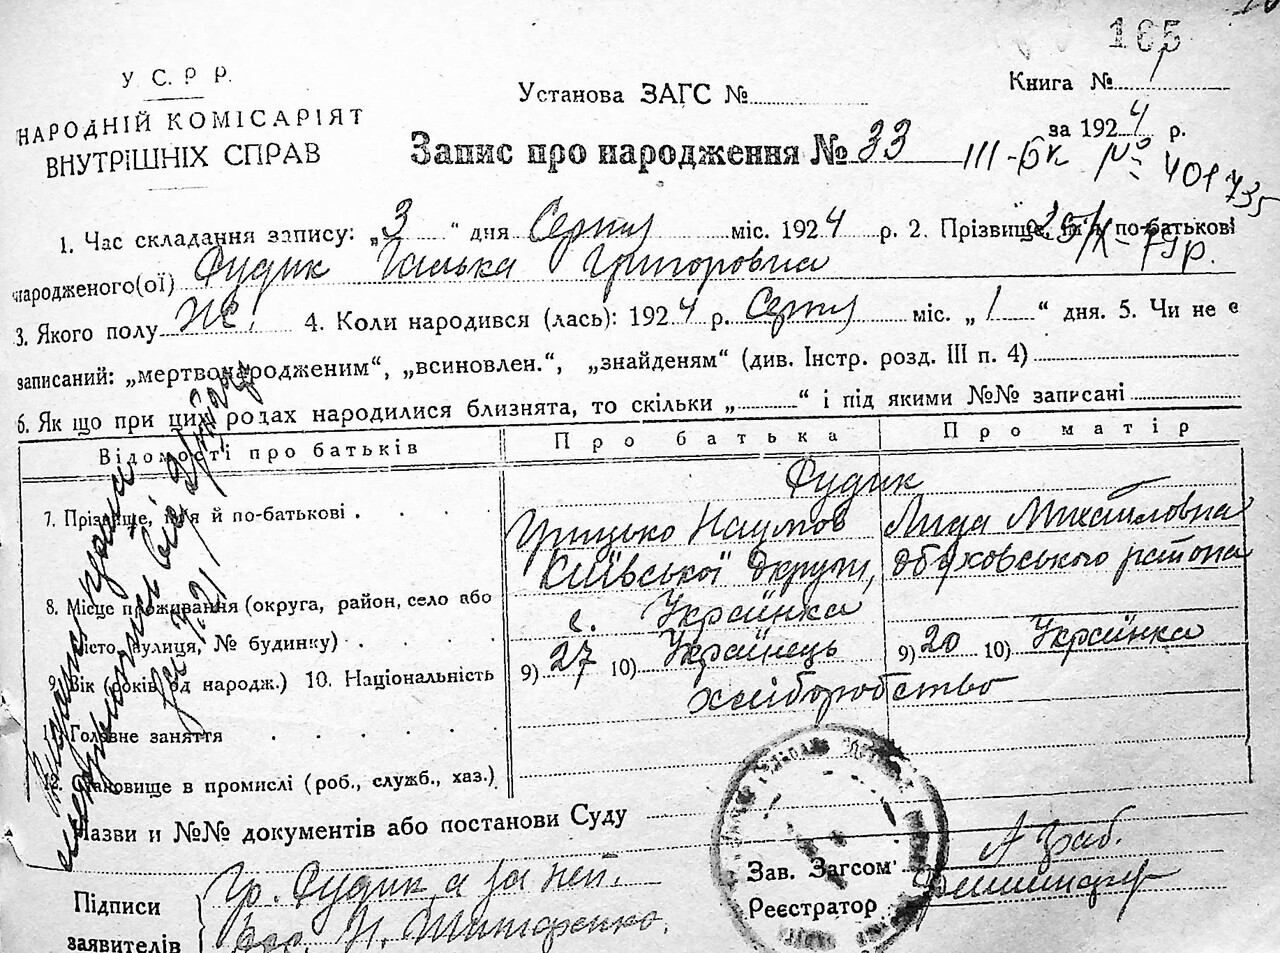 165
У. С. Р. Р.
НАРОДНІЙ КОМІСАРІЯТ
ВНУТРІШНІХ СПРАВ
Установа ЗАГС №
Книга № 1
за 1924 р.
Запис про народження № 33
III-бк № 401735
1. Час складання запису: „3“ дня Серпня міс. 1924 р. 2. Прізвище, ім'я по-батькові
народженого(ої) Судик Галька Григоровна
3. Якого полу же. 4. Коли народився (лась): 1924 р. Серпня міс. „1“ дня. 5. Чи не є
записаний: „мертвонародженим“, „всиновлен.“, „знайденям“ (див. Інстр. розд. III п. 4)
6. Як що при цих родах народилися близнята, то скільки „ “ і під якими №№ записані
Відомості про батьків
Про батька
Про матір
7. Прізвище, ім'я й по-батькові
Судик
Грицько Наумов
Лида Михайловна
8. Місце проживання (округа, район, село або
місто, вулиця, № будинку)
Київської Округи, Обуховського района
с. Українка
9. Вік (років од народж.) 10. Національність
9) 27 10) Українець
9) 20 10) Українка
11. Головне заняття
хліборобство
12. Становище в промислі (роб., служб., хаз.)
Назви и №№ документів або постанови Суду
Підписи
заявителів
Гр. Судик, а за неп.
Зав. Загсом
Реєстратор